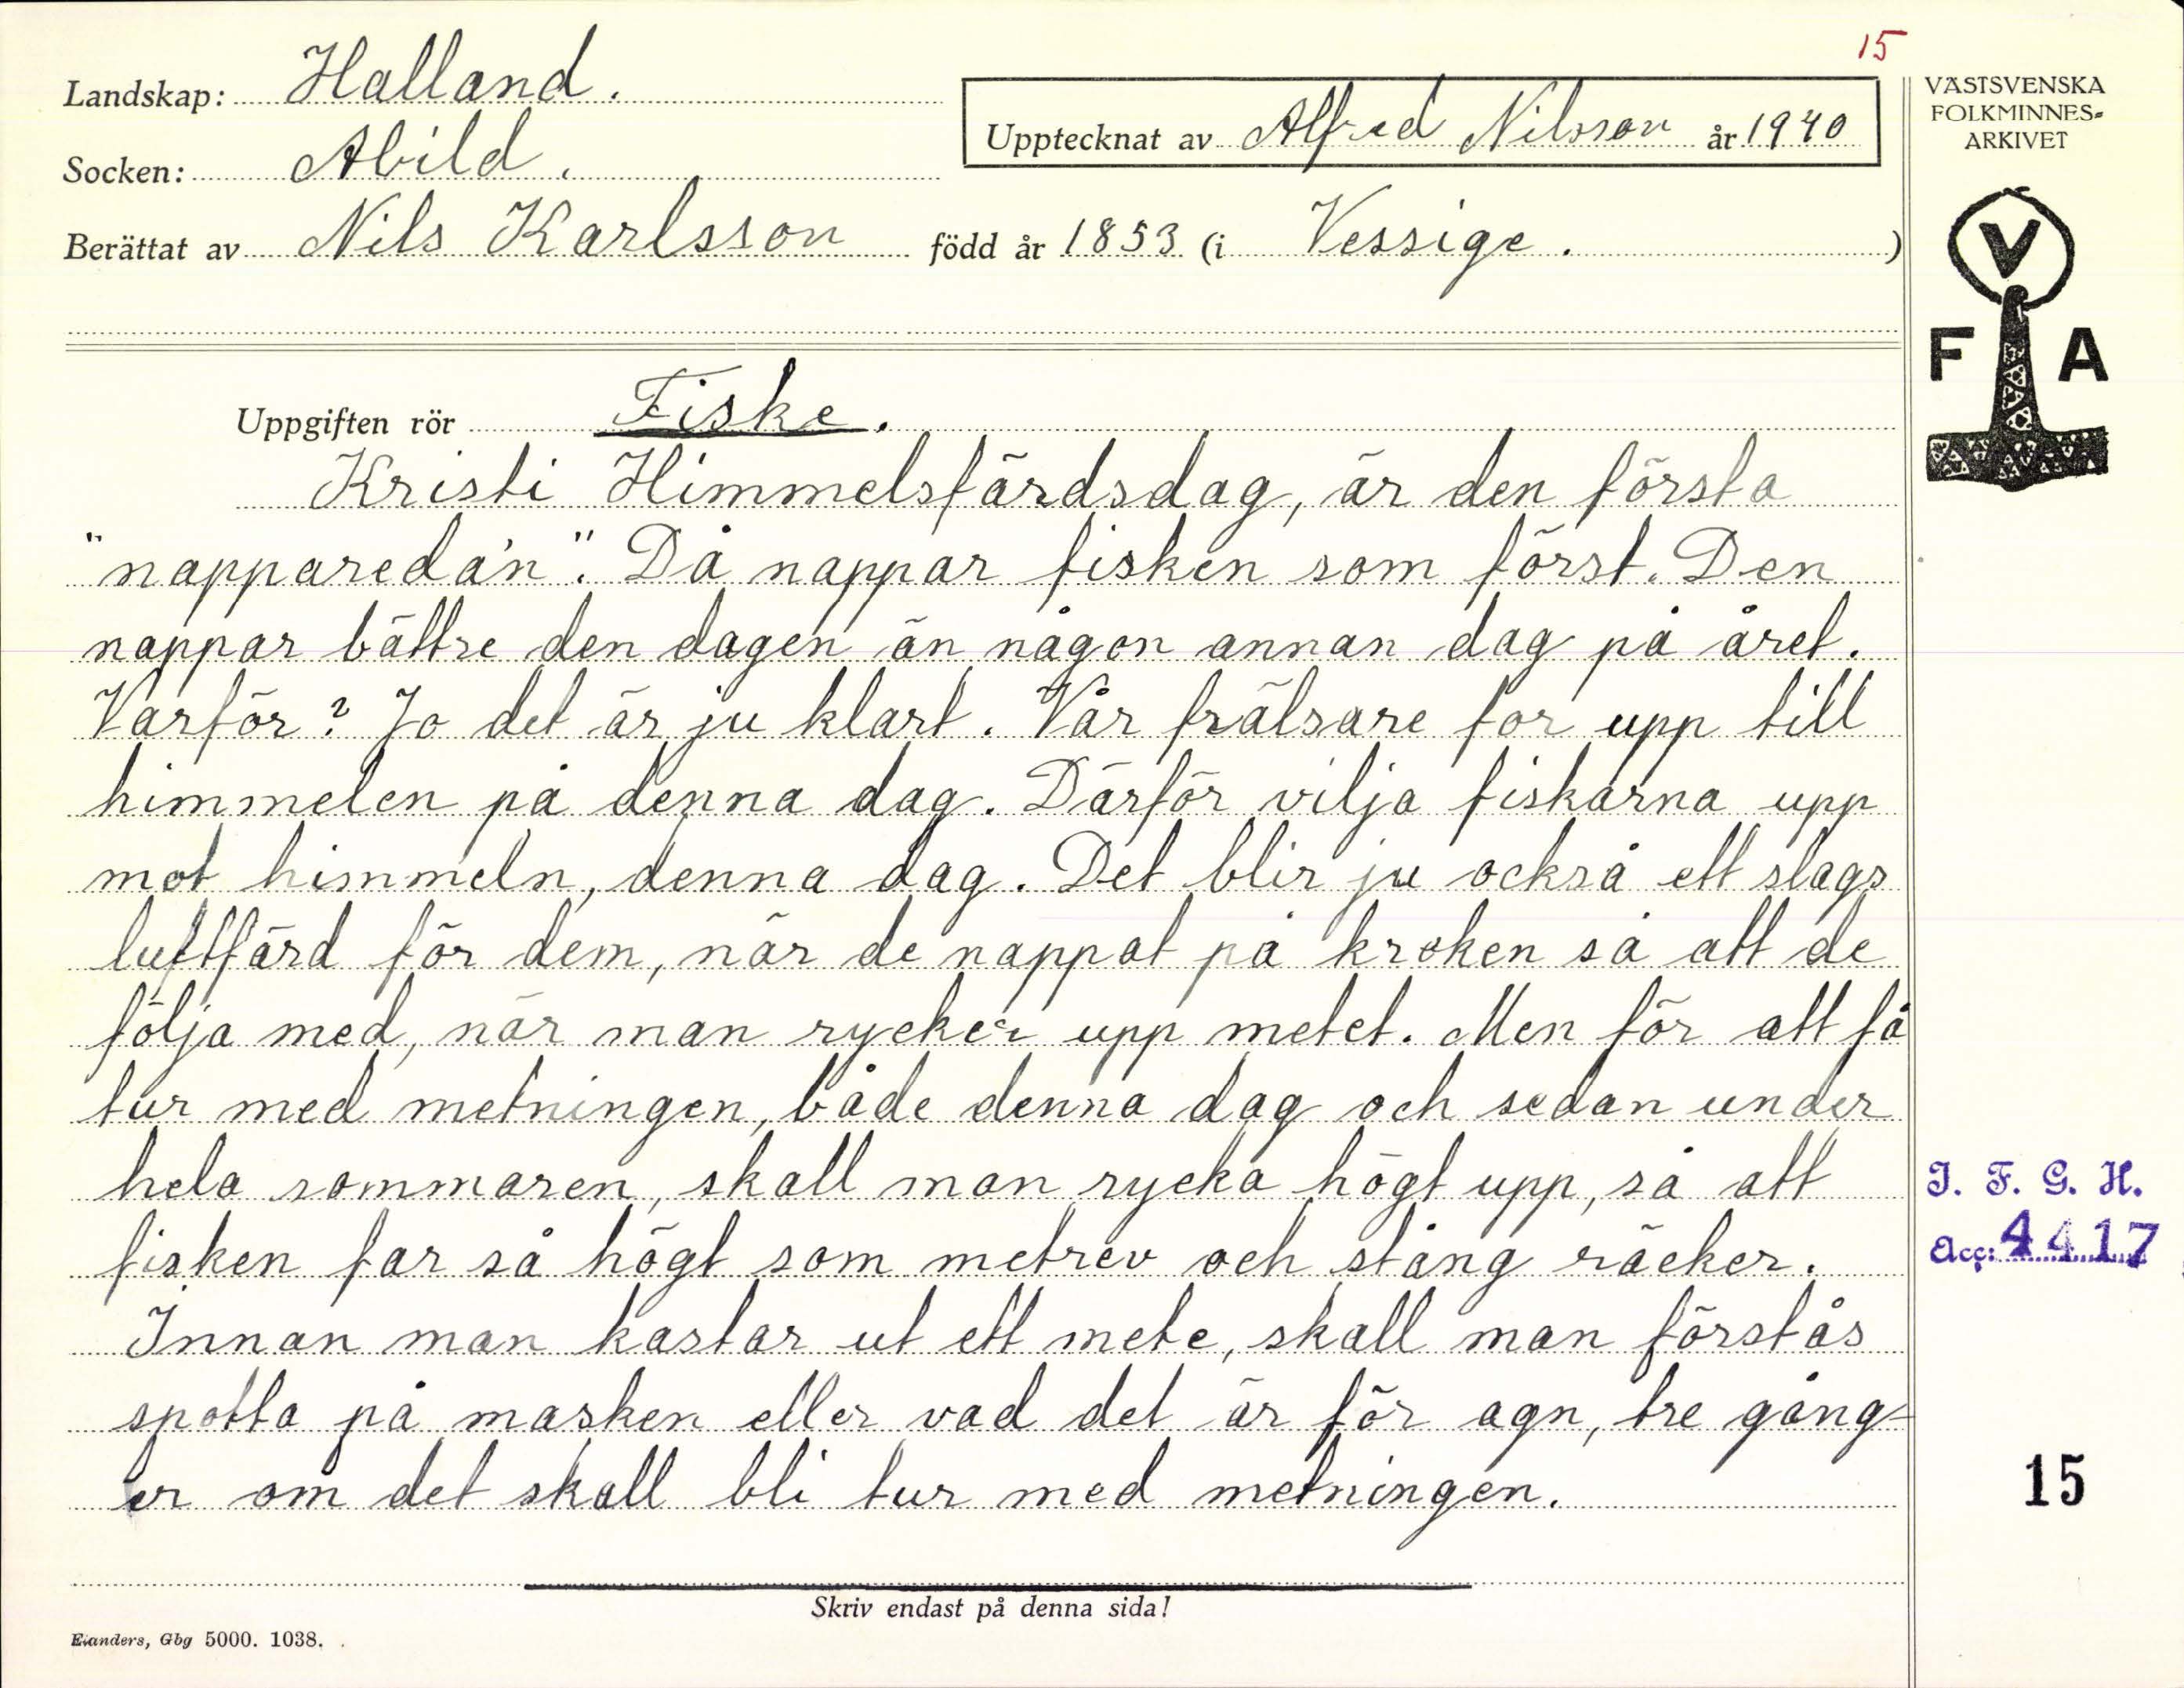 15
Landskap: Halland.
Upptecknat av Alfred Nilsson år 1940
VÄSTSVENSKA
FOLKMINNES-
ARKIVET
Socken: Abild.
Berättat av Nils Karlsson född år 1853 (i Vessige.)
V
F A
Uppgiften rör Fiske.
Kristi Himmelsfärdsdag, är den första
"napparedá'n". Då nappar fisken som först. Den
nappar bättre den dagen än någon annan dag på året.
Varför? Jo det är ju klart. Vår frälsare for upp till
himmelen på denna dag. Därför vilja fiskarna upp
mot himmeln, denna dag. Det blir ju också ett slags
luftfärd för dem, när de nappat på kroken så att de
följa med, när man rycker upp metet. Men för att få
tur med metningen, både denna dag och sedan under
hela sommaren, skall man rycka högt upp, så att
fisken far så högt som metrev och stång räcker.
Innan man kastar ut ett mete, skall man förstås
spotta på masken eller vad det är för agn, tre gång-
er om det skall bli tur med metningen.
I. F. G. H.
Acc: 4417
15
Skriv endast på denna sida!
Elanders, Gbg 5000. 1038.